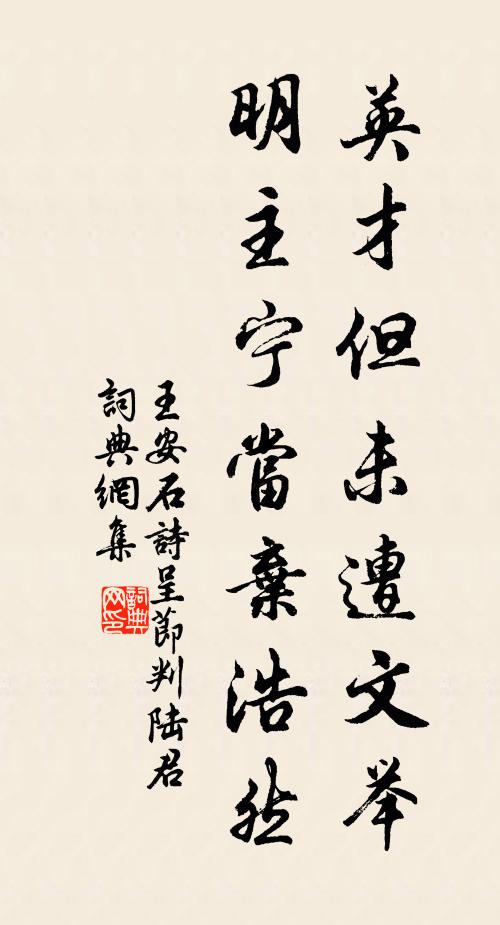 英才但未遭文举
明主宁當棄浩然
王安石詩呈節判陆君
詞典網集
詞典网印